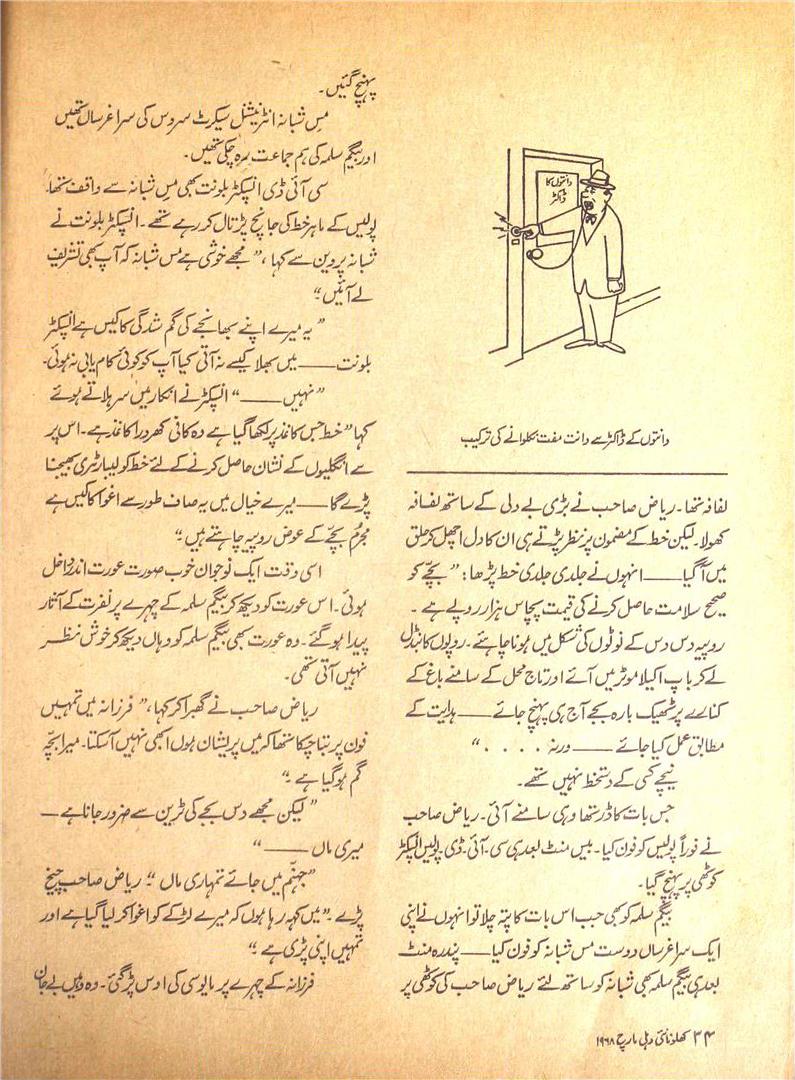 دانتوں کا
ڈاکٹر
دانتوں کے ڈاکٹر سے دانت مفت نکلوانے کی ترکیب
لفافہ تھا۔ ریاض صاحب نے بڑی بے دلی کے ساتھ لفافہ
کھولا۔ لیکن خط کے مضمون پر نظر پڑتے ہی ان کا دل اچھل کر حلق
میں آگیا——انہوں نے جلدی جلدی خط پڑھا: ”بچّے کو
صحیح سلامت حاصل کرنے کی قیمت پچاس ہزار روپے ہے۔
روپیہ دس دس کے نوٹوں کی شکل میں ہونا چاہئے۔ روپوں کا بنڈل
لے کر باپ اکیلا موٹر میں آئے اور تاج محل کے سامنے باغ کے
کنارے پر ٹھیک بارہ بجے آج ہی پہنچ جائے——ہدایت کے
مطابق عمل کیا جائے——ورنہ . . . . “
نیچے کسی کے دستخط نہیں تھے۔
جس بات کا ڈر تھا وہی سامنے آئی۔ ریاض صاحب
نے فوراً پولیس کو فون کیا۔ بیس منٹ بعد ہی سی۔ آئی۔ ڈی۔ پولیس انسپکٹر
کوٹھی پر پہنچ گیا۔
بیگم سلمہ کو بھی جب اس بات کا پتہ چلا تو انہوں نے اپنی
ایک سراغرساں دوست مس شبانہ کو فون کیا——پندرہ منٹ
بعد ہی بیگم سلمہ بھی شبانہ کو ساتھ لئے ریاض صاحب کی کوٹھی پر
پہنچ گئیں۔
مِس شبانہ انٹرنیشنل سیکرٹ سروس کی سراغرساں تھیں
اور بیگم سلمہ کی ہم جماعت رہ چکی تھیں۔
سی آئی ڈی انسپکٹر بلونت بھی مِس شبانہ سے واقف تھا۔
پولیس کے ماہر خط کی جانچ پڑتال کر رہے تھے۔ انسپکٹر بلونت نے
شبانہ پروین سے کہا، ”مجھے خوشی ہے مس شبانہ کہ آپ بھی تشریف
لے آئیں“
”یہ میرے اپنے بھانجے کی گم شدگی کا کیس ہے انسپکٹر
بلونت——میں بھلا کیسے نہ آتی کیا آپ کو کوئی کام یابی نہ ہوئی۔
”نہیں——“ انسپکٹر نے انکار میں سر ہلاتے ہوئے
کہا ”خط جس کاغذ پر لکھا گیا ہے وہ کافی کھردرا کاغذ ہے۔ اس پر
سے انگلیوں کے نشان حاصل کرنے کے لئے خط کو لیبارٹری بھیجنا
پڑے گا——میرے خیال میں یہ صاف طور سے اغوا کا کیس ہے
مجرم بچّے کے عوض روپیہ چاہتے ہیں“
اسی وقت ایک نوجوان خوب صورت عورت اندر داخل
ہوئی۔ اس عورت کو دیکھ کر بیگم سلمہ کے چہرے پر نفرت کے آثار
پیدا ہو گئے۔ وہ عورت بھی بیگم سلمہ کو وہاں دیکھ کر خوش نظر
نہیں آتی تھی۔
ریاض صاحب نے گھبرا کر کہا، ”فرزانہ میں تمہیں
فون پر بتا چکا تھا کہ میں پریشان ہوں ابھی نہیں آسکتا۔ میرا بچّہ
گم ہو گیا ہے“
”لیکن مجھے دس بجے کی ٹرین سے ضرور جانا ہے—
میری ماں——“
”جہنّم میں جائے تمہاری ماں“ ریاض صاحب چیخ
پڑے۔ ”میں کہہ رہا ہوں کہ میرے لڑکے کو اغوا کر لیا گیا ہے اور
تمہیں اپنی پڑی ہے“
فرزانہ کے چہرے پر مایوسی کی اوس پڑ گئی۔ وہ وہیں بے جان
۲۴ کھلونا نئی دہلی مارچ ۱۹۶۸